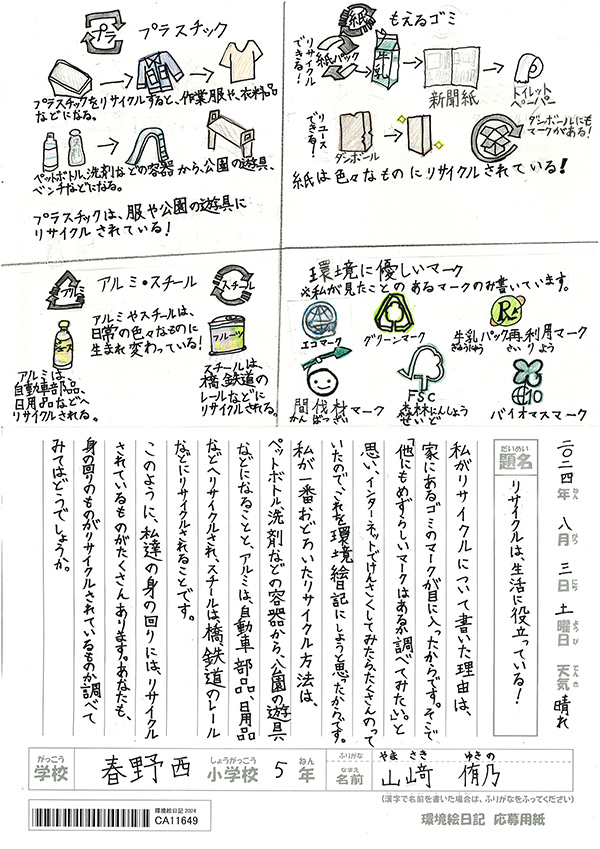 プラ
プラスチック
プラスチックをリサイクルすると、作業服や、衣料品
などになる。
ペットボトル、洗剤などの容器から、公園の遊具、
ベンチなどになる。
プラスチックは、服や公園の遊具に
リサイクルされている!
紙
もえるゴミ
リサイクル
できる!
紙パック
牛乳
新聞紙
トイレット
ペーパー
リユース
できる!
ダンボール
ダンボールにも
マークがある!
紙は色々なものにリサイクルされている!
アルミ
アルミ・スチール
スチール
アルミやスチールは、
日常の色々なものに
生まれ変わっている!
ジュース
フルーツ
アルミは、
自動車部品、
日用品などへ
リサイクルされる。
スチールは、
橋、鉄道の
レールなどに
リサイクルされる。
環境に優しいマーク
※私が見たことのあるマークのみ書いています。
エコマーク
グリーンマーク
牛乳パック再利用マーク
ぎゅうにゅう さいりよう
間伐材マーク
かんばつざい
FSC
森林にんしょう
せいど
バイオマスマーク
二〇二四年 八月 三日 土曜日 天気 晴れ
ねん がつ にち ようび てんき
だいめい
題名
リサイクルは、生活に役立っている!
私がリサイクルについて書いた理由は、
家にあるゴミのマークが目に入ったからです。そこで
「他にもめずらしいマークはあるか調べてみたい。」と
思い、インターネットでけんさくしてみたら、たくさんのって
いたので、これを環境絵日記にしようと思ったからです。
私が一番おどろいたリサイクル方法は、
ペットボトル、洗剤などの容器から、公園の遊具
などになることと、アルミは、自動車部品、日用品
などへリサイクルされ、スチールは、橋、鉄道のレール
などにリサイクルされることです。
このように、私達の身の回りには、リサイクル
されているものがたくさんあります。あなたも、
身の回りのものがリサイクルされているものか調べて
みてはどうでしょうか。
がっこう
学校
春野西
しょうがっこう
小学校
5
ねん
年
ふりがな
やまさき ゆきの
なまえ
名前
山﨑 侑乃
(漢字で名前を書いた場合は、ふりがなをふってください)
環境絵日記2024
CA11649
環境絵日記 応募用紙